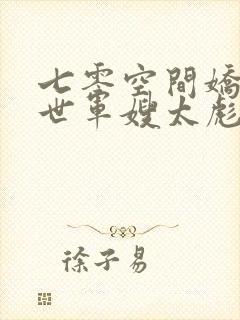 七零空間嬌
世軍嫂太彪
徐子易